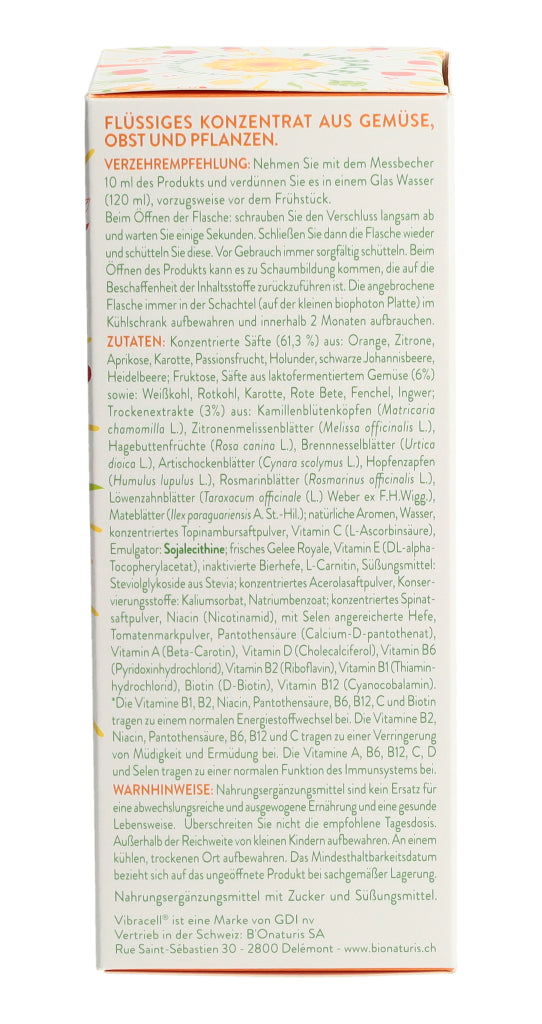 FLÜSSIGES KONZENTRAT AUS GEMÜSE,
OBST UND PFLANZEN.
VERZEHREMPFEHLUNG: Nehmen Sie mit dem Messbecher
10 ml des Produkts und verdünnen Sie es in einem Glas Wasser
(120 ml), vorzugsweise vor dem Frühstück.
Beim Öffnen der Flasche: schrauben Sie den Verschluss langsam ab
und warten Sie einige Sekunden. Schließen Sie dann die Flasche wieder
und schütteln Sie diese. Vor Gebrauch immer sorgfältig schütteln. Beim
Öffnen des Produkts kann es zu Schaumbildung kommen, die auf die
Beschaffenheit der Inhaltsstoffe zurückzuführen ist. Die angebrochene
Flasche immer in der Schachtel (auf der kleinen biophoton Platte) im
Kühlschrank aufbewahren und innerhalb 2 Monaten aufbrauchen.
ZUTATEN: Konzentrierte Säfte (61,3 %) aus: Orange, Zitrone,
Aprikose, Karotte, Passionsfrucht, Holunder, schwarze Johannisbeere,
Heidelbeere; Fruktose, Säfte aus laktofermentiertem Gemüse (6%)
sowie: Weißkohl, Rotkohl, Karotte, Rote Bete, Fenchel, Ingwer;
Trockenextrakte (3%) aus: Kamillenblütenköpfen (Matricaria
chamomilla L.), Zitronenmelissenblätter (Melissa officinalis L.),
Hagebuttenfrüchte (Rosa canina L.), Brennnesselblätter (Urtica
dioica L.), Artischockenblätter (Cynara scolymus L.), Hopfenzapfen
(Humulus lupulus L.), Rosmarinblätter (Rosmarinus officinalis L.),
Löwenzahnblätter (Taraxocum officinale (L.) Weber ex F.H.Wigg.),
Mateblätter (Ilex paraguariensis A. St.-Hil.); natürliche Aromen, Wasser,
konzentriertes Topinambursaftpulver, Vitamin C (L-Ascorbinsäure),
Emulgator: Sojalecithine; frisches Gelee Royale, Vitamin E (DL-alpha-
Tocopherylacetat), inaktivierte Bierhefe, L-Carnitin, Süßungsmittel:
Steviolglykoside aus Stevia; konzentriertes Acerolasaftpulver, Konser-
vierungsstoffe: Kaliumsorbat, Natriumbenzoat; konzentriertes Spinat-
saftpulver, Niacin (Nicotinamid), mit Selen angereicherte Hefe,
Tomatenmarkpulver, Pantothensäure (Calcium-D-pantothenat),
Vitamin A (Beta-Carotin), Vitamin D (Cholecalciferol), Vitamin B6
(Pyridoxinhydrochlorid), Vitamin B2 (Riboflavin), Vitamin B1 (Thiamin-
hydrochlorid), Biotin (D-Biotin), Vitamin B12 (Cyanocobalamin).
*Die Vitamine B1, B2, Niacin, Pantothensäure, B6, B12, C und Biotin
tragen zu einem normalen Energiestoffwechsel bei. Die Vitamine B2,
Niacin, Pantothensäure, B6, B12 und C tragen zu einer Verringerung
von Müdigkeit und Ermüdung bei. Die Vitamine A, B6, B12, C, D
und Selen tragen zu einer normalen Funktion des Immunsystems bei.
WARNHINWEISE: Nahrungsergänzungsmittel sind kein Ersatz für
eine abwechslungsreiche und ausgewogene Ernährung und eine gesunde
Lebensweise. Überschreiten Sie nicht die empfohlene Tagesdosis.
Außerhalb der Reichweite von kleinen Kindern aufbewahren. An einem
kühlen, trockenen Ort aufbewahren. Das Mindesthaltbarkeitsdatum
bezieht sich auf das ungeöffnete Produkt bei sachgemäßer Lagerung.
Nahrungsergänzungsmittel mit Zucker und Süßungsmittel.
Vibracell® ist eine Marke von GDI nv
Vertrieb in der Schweiz: B'Onaturis SA
Rue Saint-Sébastien 30 - 2800 Delémont - www.bionaturis.ch